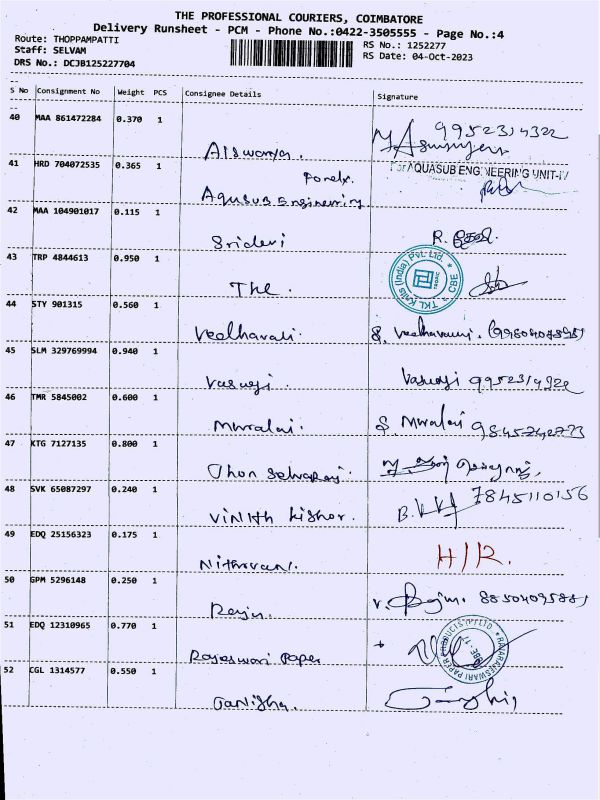 THE PROFESSIONAL COURIERS, COIMBATORE
Delivery Runsheet - PCM - Phone No.:0422-3505555 - Page No.:4
Route: THOPPAMPATTI
Staff: SELVAM
DRS No.: DCJB125227704
RS No.: 1252277
RS Date: 04-Oct-2023
S No Consignment No Weight PCS Consignee Details Signature
40 MAA 861472284 0.370 1 Aiswarya. 9952314322
41 HRD 704072535 0.365 1 Aquasub Engineering AQUASUB ENGINEERING UNIT-IV
42 MAA 104901017 0.115 1 Sridevi R.
43 TRP 4844613 0.950 1 The TKL Knits (India) Pvt. Ltd. * CBE *
44 STY 901315 0.560 1
45 SLM 329769994 0.940 1 Vasugi Vasugi
46 TMR 5845002 0.600 1 Murali S. Murali
47 KTG 7127135 0.800 1
48 SVK 65087297 0.240 1 Vinith Kishor. 7845110156
49 EDQ 25156323 0.175 1 H/R.
50 GPM 5296148 0.250 1 Raju
51 EDQ 12310965 0.770 1 Rajeswari Paper RAJARAJESWARI PAPER PRODUCTS P LTD CBE-17
52 CGL 1314577 0.550 1